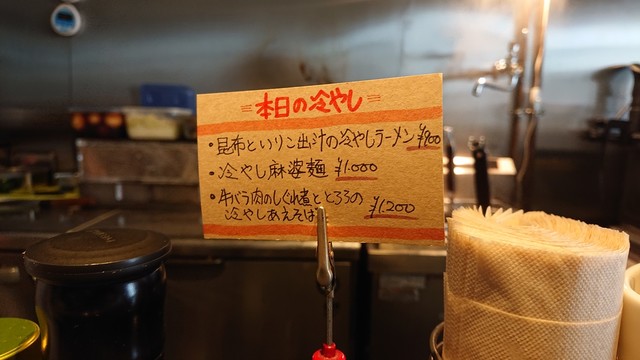 =本日の冷やし=
・昆布といりこ出汁の冷やしラーメン ¥900
・冷やし麻婆麺 ¥1.000
・牛バラ肉のしぐれ煮ととろろの
冷やしあえそば ¥1.200